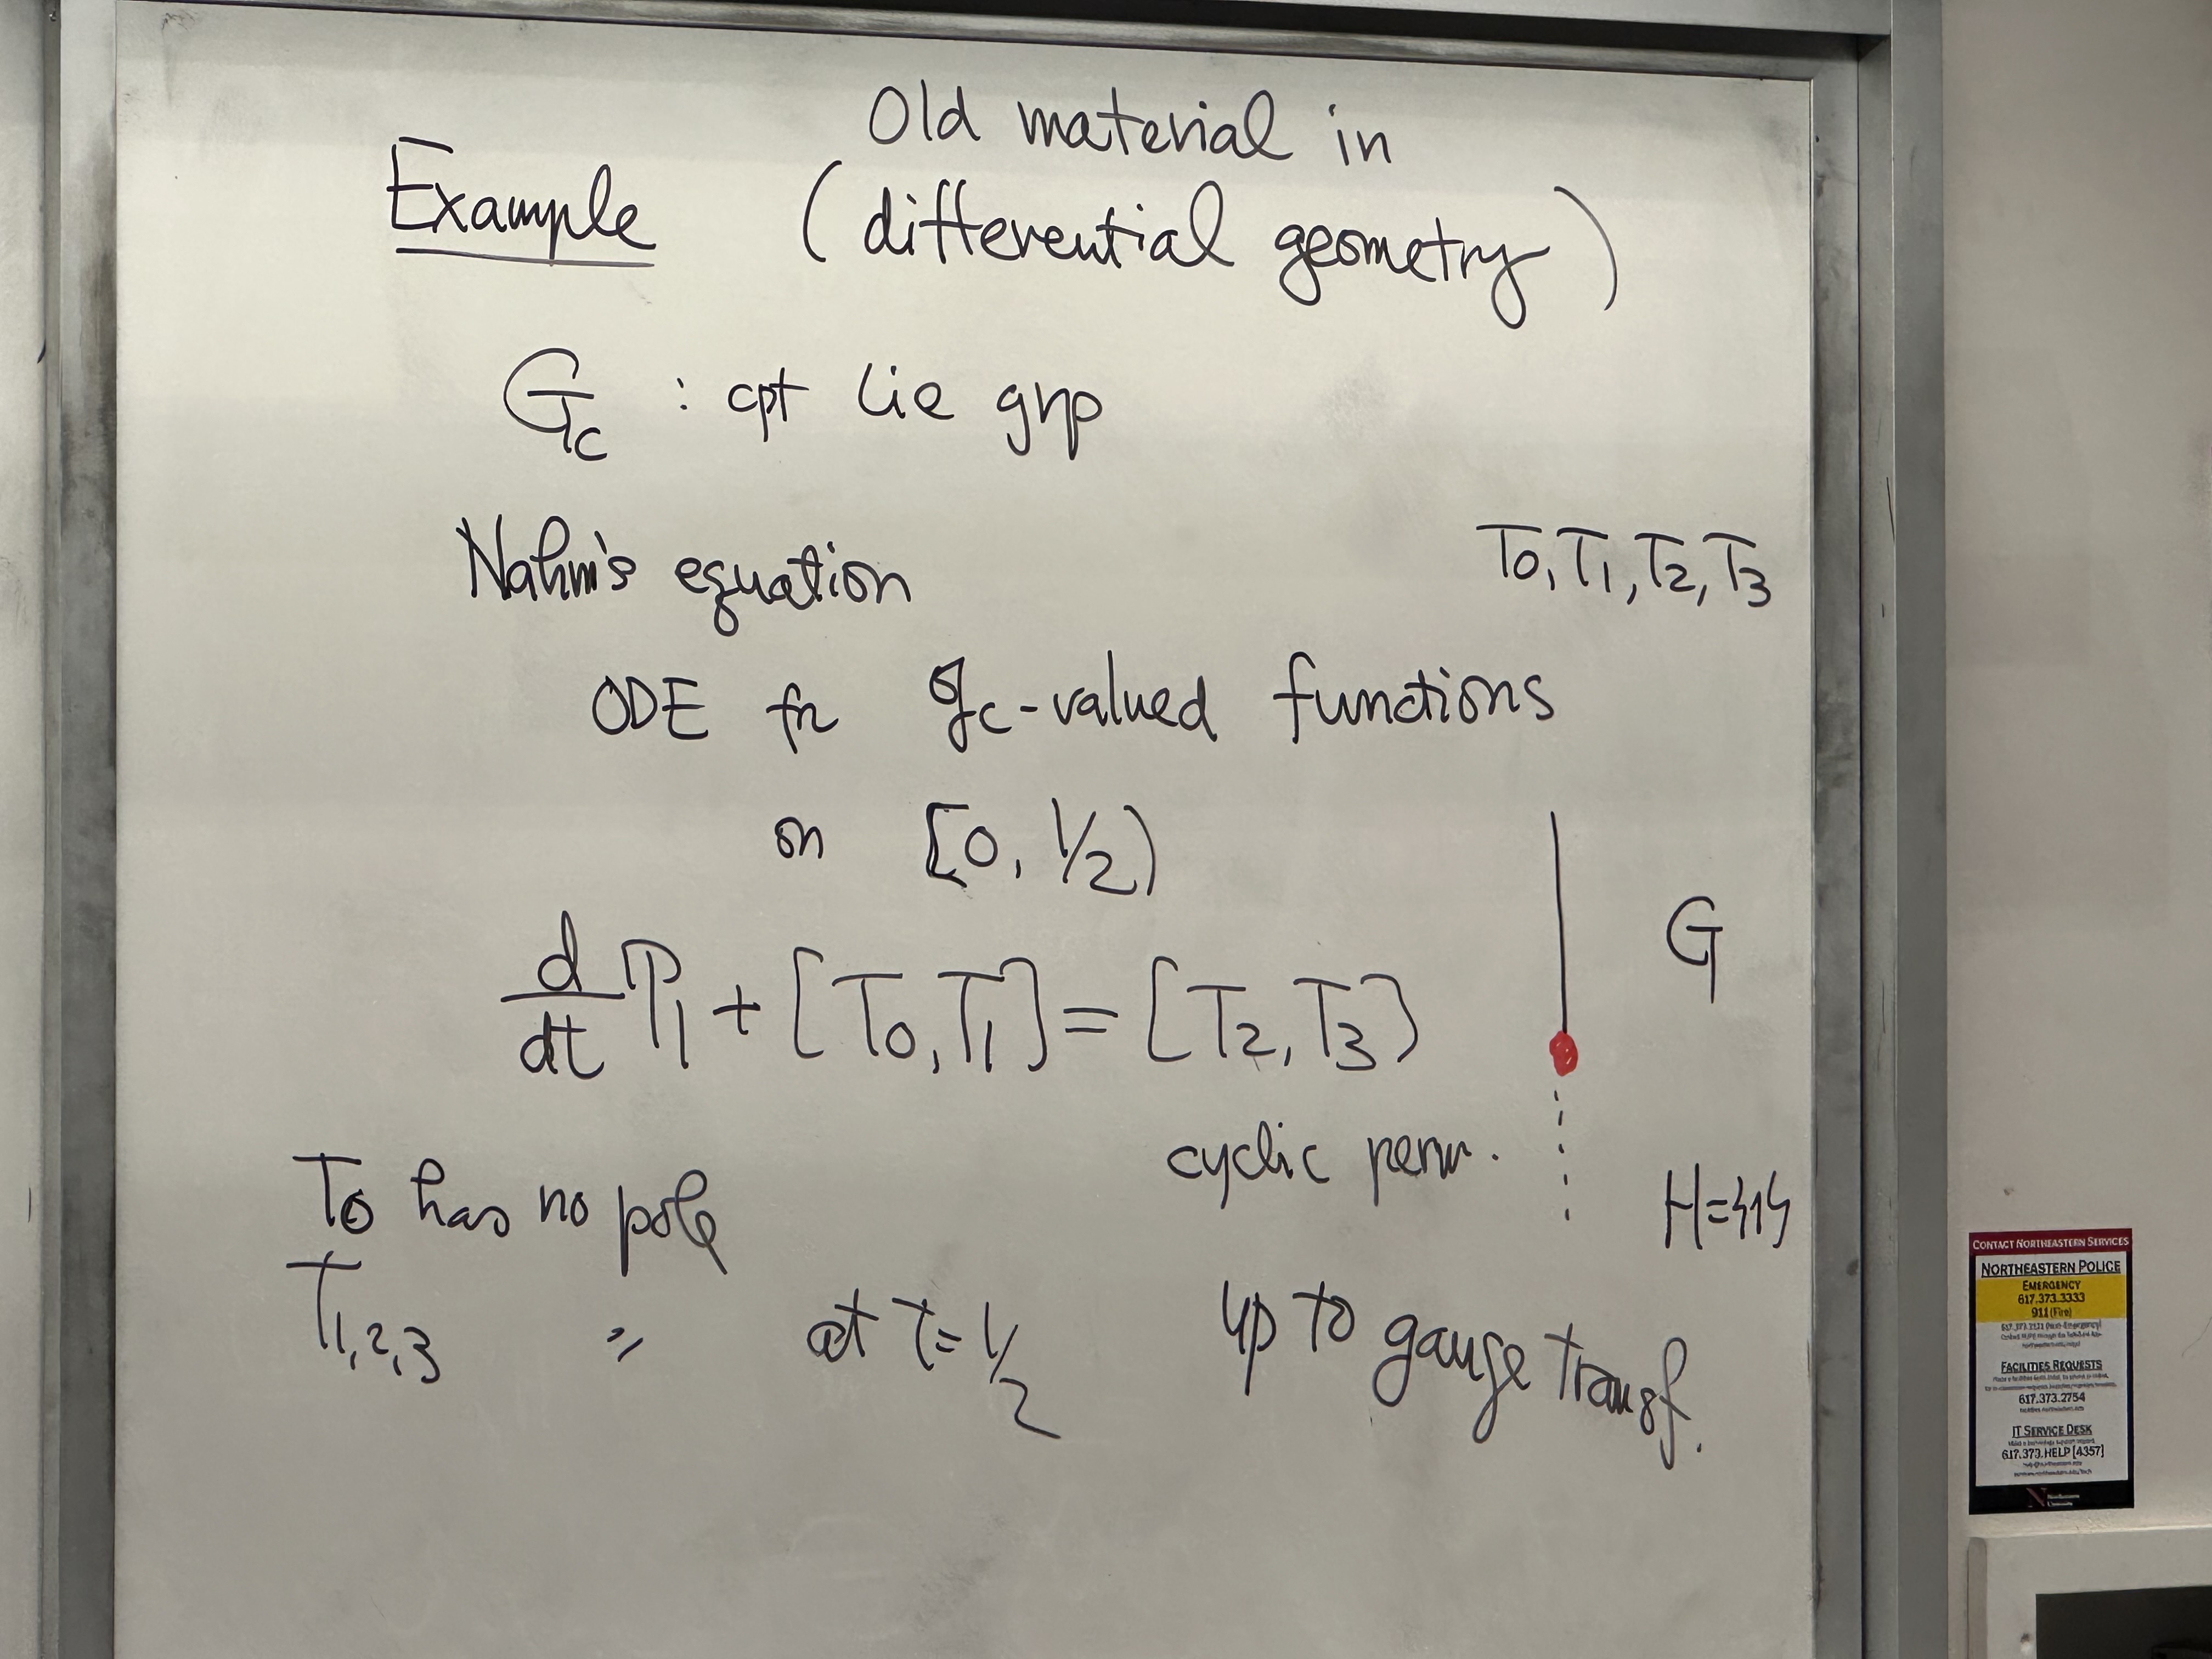 Old material in
Example (differential geometry)
G_c : cpt Lie grp
Nahm's equation T_0, T_1, T_2, T_3
ODE for 𝔤_c-valued functions
on [0, 1/2)
d/dt T_1 + [T_0, T_1] = [T_2, T_3]
G
cyclic perm.
H={1}
T_0 has no pole
T_{1,2,3} 〃 at t=1/2 up to gauge transf.
CONTACT NORTHEASTERN SERVICES
NORTHEASTERN POLICE
EMERGENCY
617.373.3333
911 (Fire)
617.373.2121 (Non-Emergency)
FACILITIES REQUESTS
617.373.2754
IT SERVICE DESK
617.373.HELP [4357]
N Northeastern
University